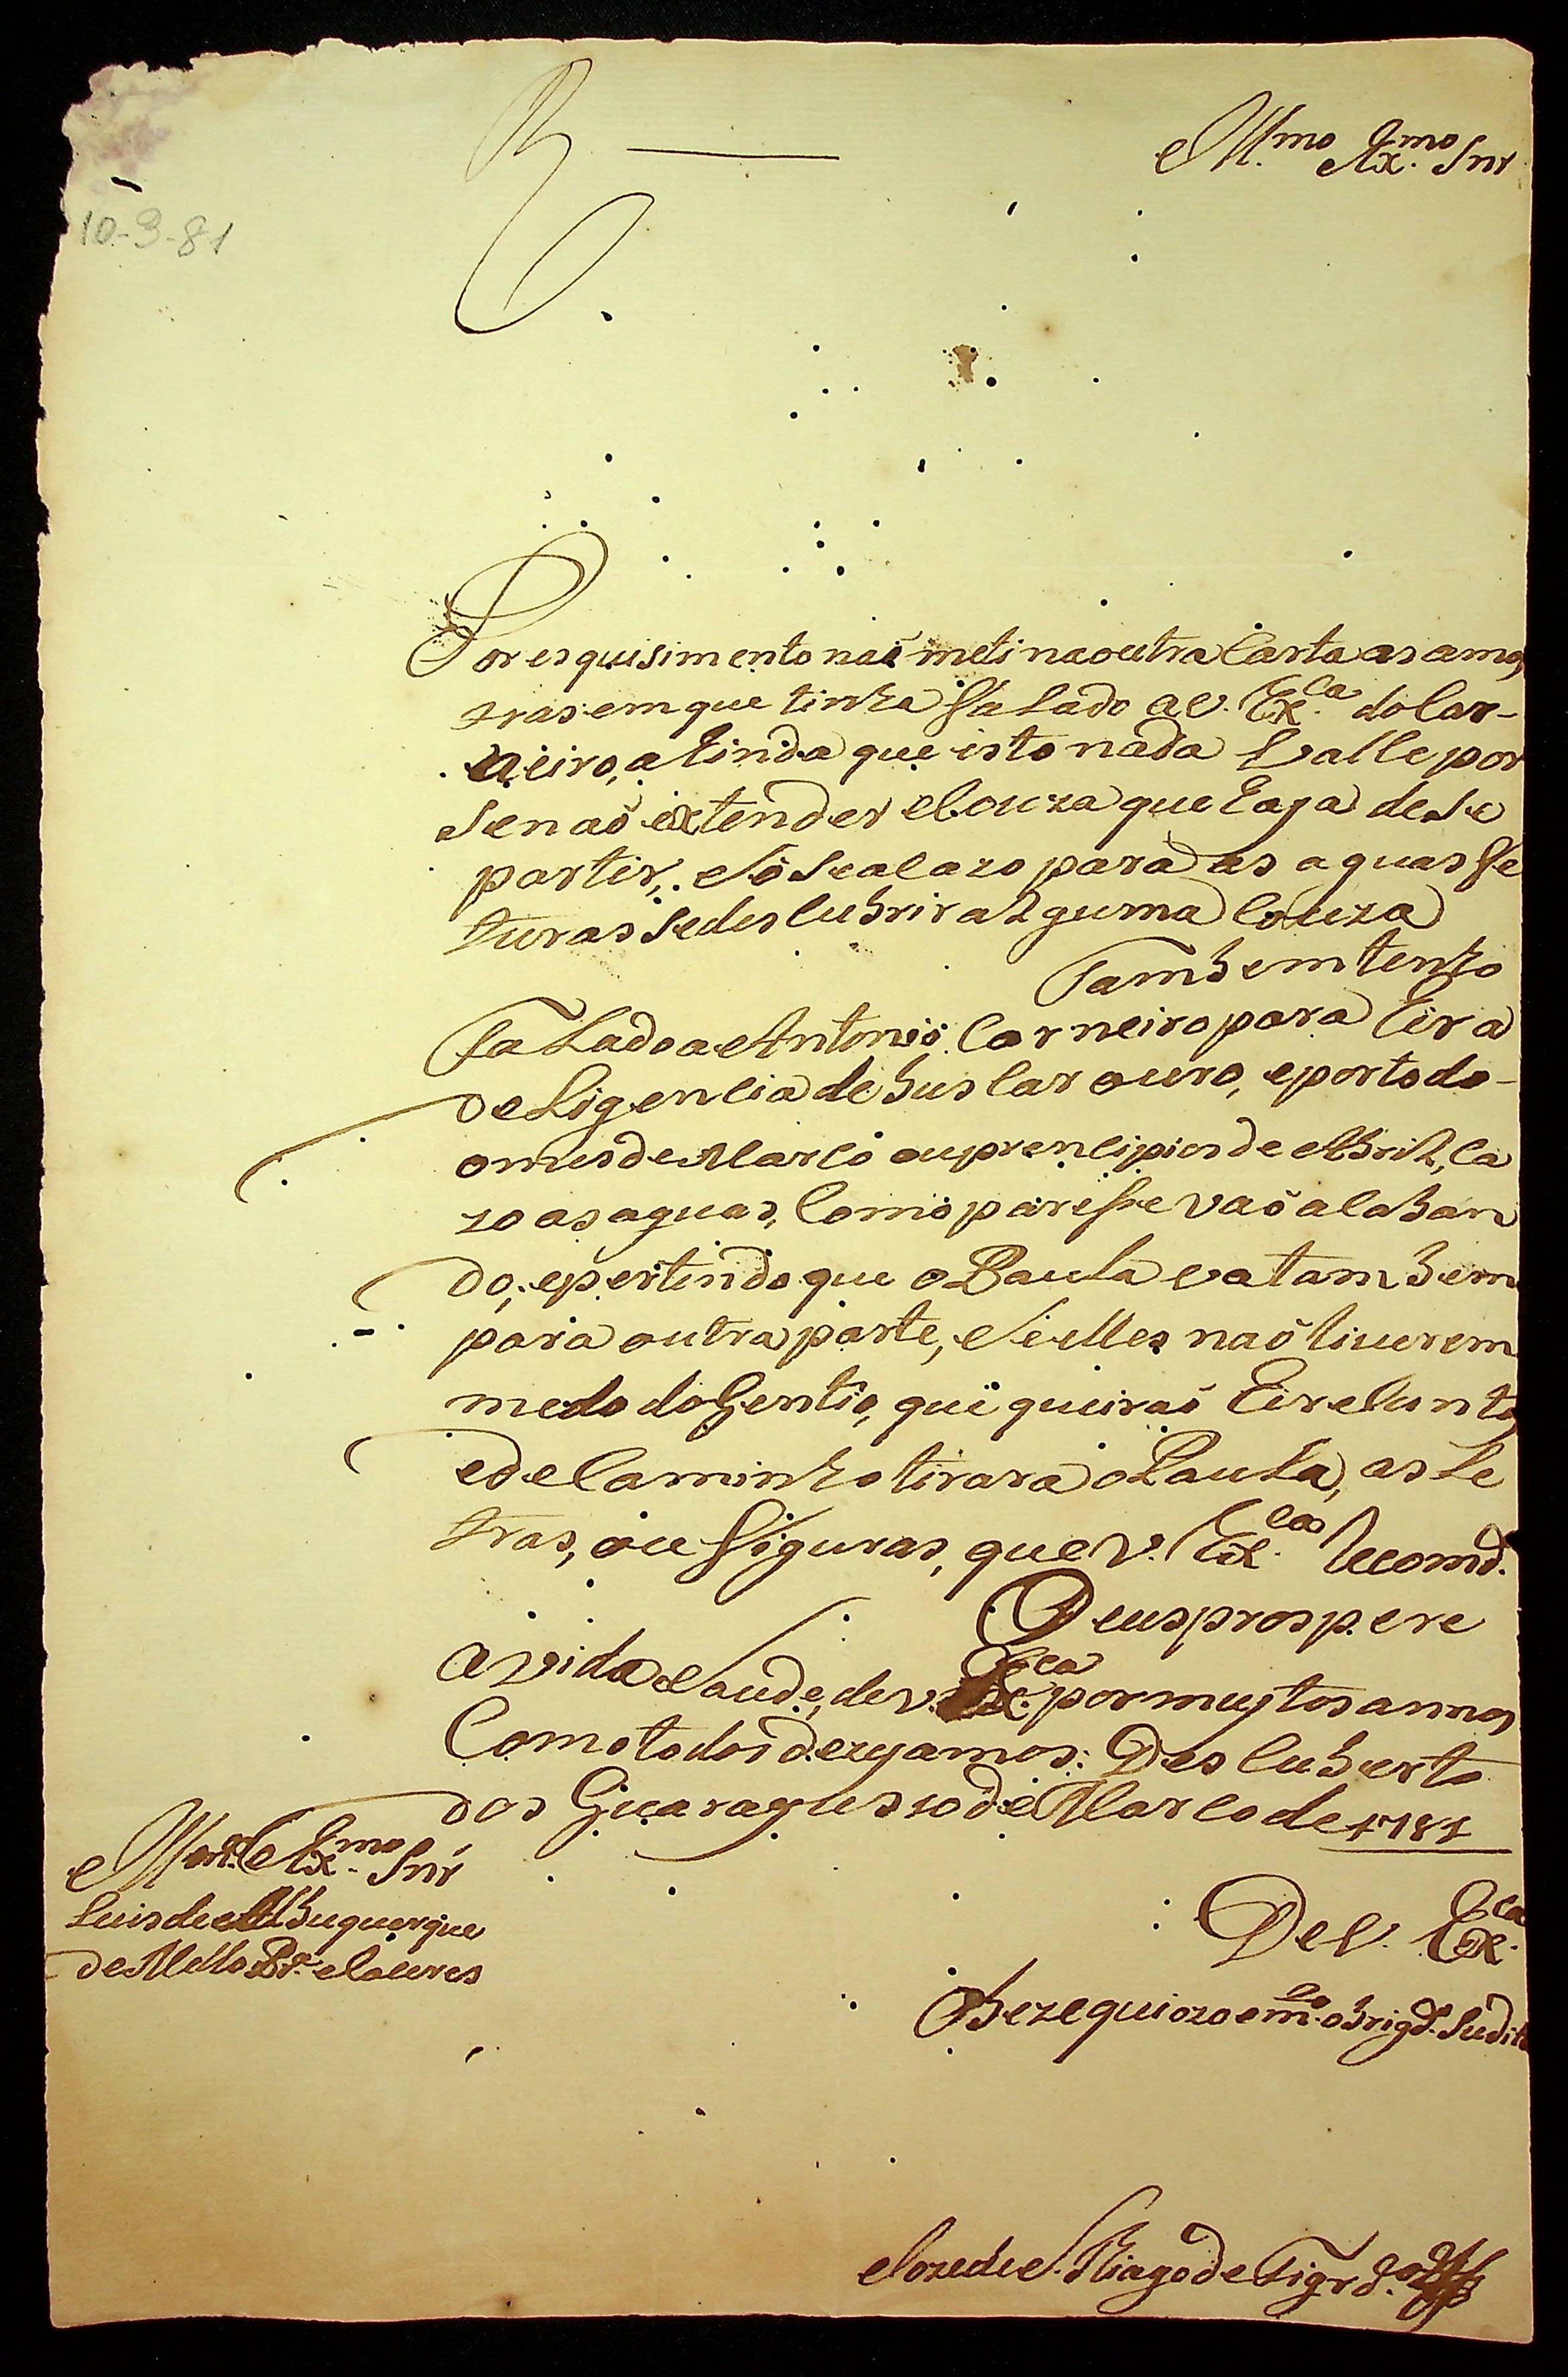 R
Ill.mo Ex.mo Snr
10-3-81
Por esquisimento naõ meti na outra Carta as amos
tras em que tinha falado a V. Ex.ca do Car-
neiro, ainda que isto nada valle por
se naõ extender couza que haja de se
partir, e só se acazo para as aguas fe
turas se descubrir alguma couza
Tambem tenho
falado a Antonio Carneiro para hir a
deligencia de buscar ouro, e por todo
o mes de Marco ou prencipios de Abril, ca
zo as aguas, como paresse vaõ acaban
do, e pertendo que o Paula va tambem
para outra parte, se elles naõ tiverem
medo do Gentio, que queiraõ hir cunto
e de caminho tirara o Paula, as le
tras, ou figuras, que V. Ex.ca Recomd.
Deus prospere
a vida e saude, de V. Ex.ca por muytos annos
Como todos dezeyamos: Descuberto
dos Guarayus 10 de Marco de 1781
Ex.mo Snr
Luis de Albuquerque
de Mello Pr.a e Caceres
De V. Ex.ca
Obezequiozo e m.to obrigd.o Sudito
Joze de S. Thiago de Figrd.o